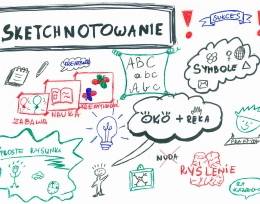 SKETCHNOTOWANIE
SUKCES
KREATYWNOŚĆ
ABC
abc
Abc
SYMBOLE
ZABAWA
NAUKA
OKO + RĘKA
PROSTE RYSUNKI
NUDA
MYŚLENIE
DLA
KAŻDEGO